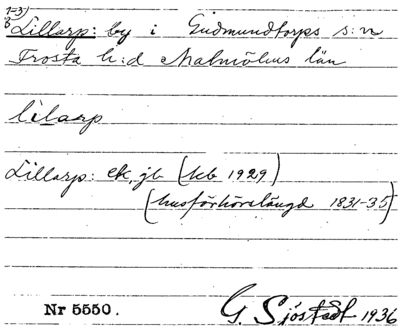 1-3)
Lillarp: by i Gudmundtorps s:n
Frosta h:d Malmöhus län
lilarp
Lillarp: ek, jb (kb 1929)
(husförhörslängd 1831-35)
Nr 5550. G. Sjöstedt 1936